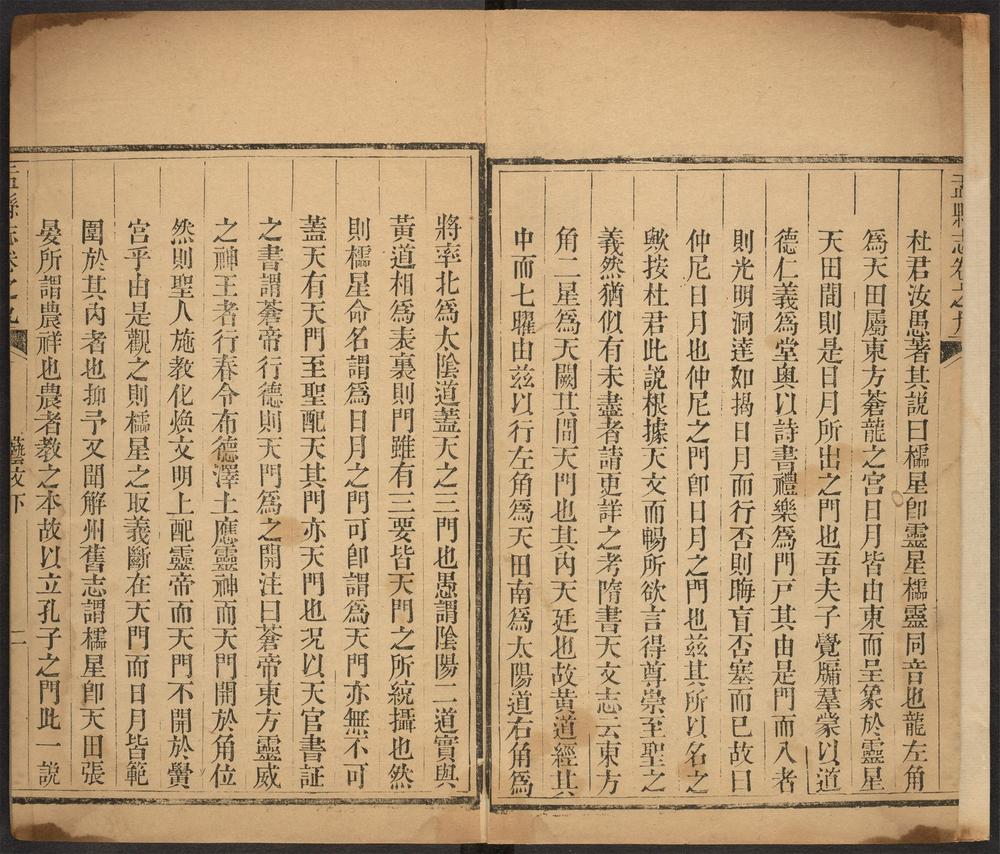 盂縣志卷之九
杜君汝愚著其說曰櫺星卽靈星櫺靈同音也龍左角
爲天田屬東方蒼龍之宮日月皆由東而呈象於靈星
天田間則是日月所出之門也吾夫子覺牖羣蒙以道
德仁義爲堂奧以詩書禮樂爲門戸其由是門而入者
則光明洞達如揭日月而行否則晦盲否塞而已故曰
仲尼日月也仲尼之門卽日月之門也兹其所以名之
歟按杜君此說根據天文而暢所欲言得尊崇至聖之
義然猶似有未盡者請更詳之考隋書天文志云東方
角二星爲天闕其間天門也其內天廷也故黃道經其
中而七曜由兹以行左角爲天田南爲太陽道右角爲
將率北爲太陰道蓋天之三門也愚謂陰陽二道實與
黃道相爲表裏則門雖有三要皆天門之所統攝也然
則櫺星命名謂爲日月之門可卽謂爲天門亦無不可
蓋天有天門至聖配天其門亦天門也况以天官書証
之書謂蒼帝行德則天門爲之開注曰蒼帝東方靈威
之神王者行春令布德澤上應靈神而天門開於角位
然則聖人施教化煥文明上配靈帝而天門不開於黌
宮乎由是觀之則櫺星之取義斷在天門而日月皆範
圍於其內者也抑予又聞解州舊志謂櫺星卽天田張
晏所謂農祥也農者教之本故以立孔子之門此一說
盂縣志卷之九
藝文下
二